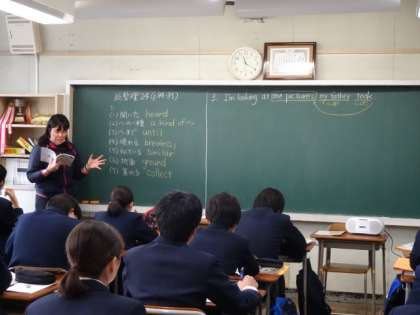 1.
(1) 聞いた heard
(2) 〜の一種 a kind of 〜
(3) 〜まで until
(5) 似ている similar
(6) 地面 ground
(7) 集める collect
3. I'm looking at the pictures my father took